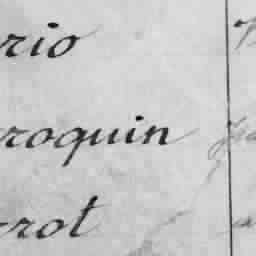 rio
roquin
rrot